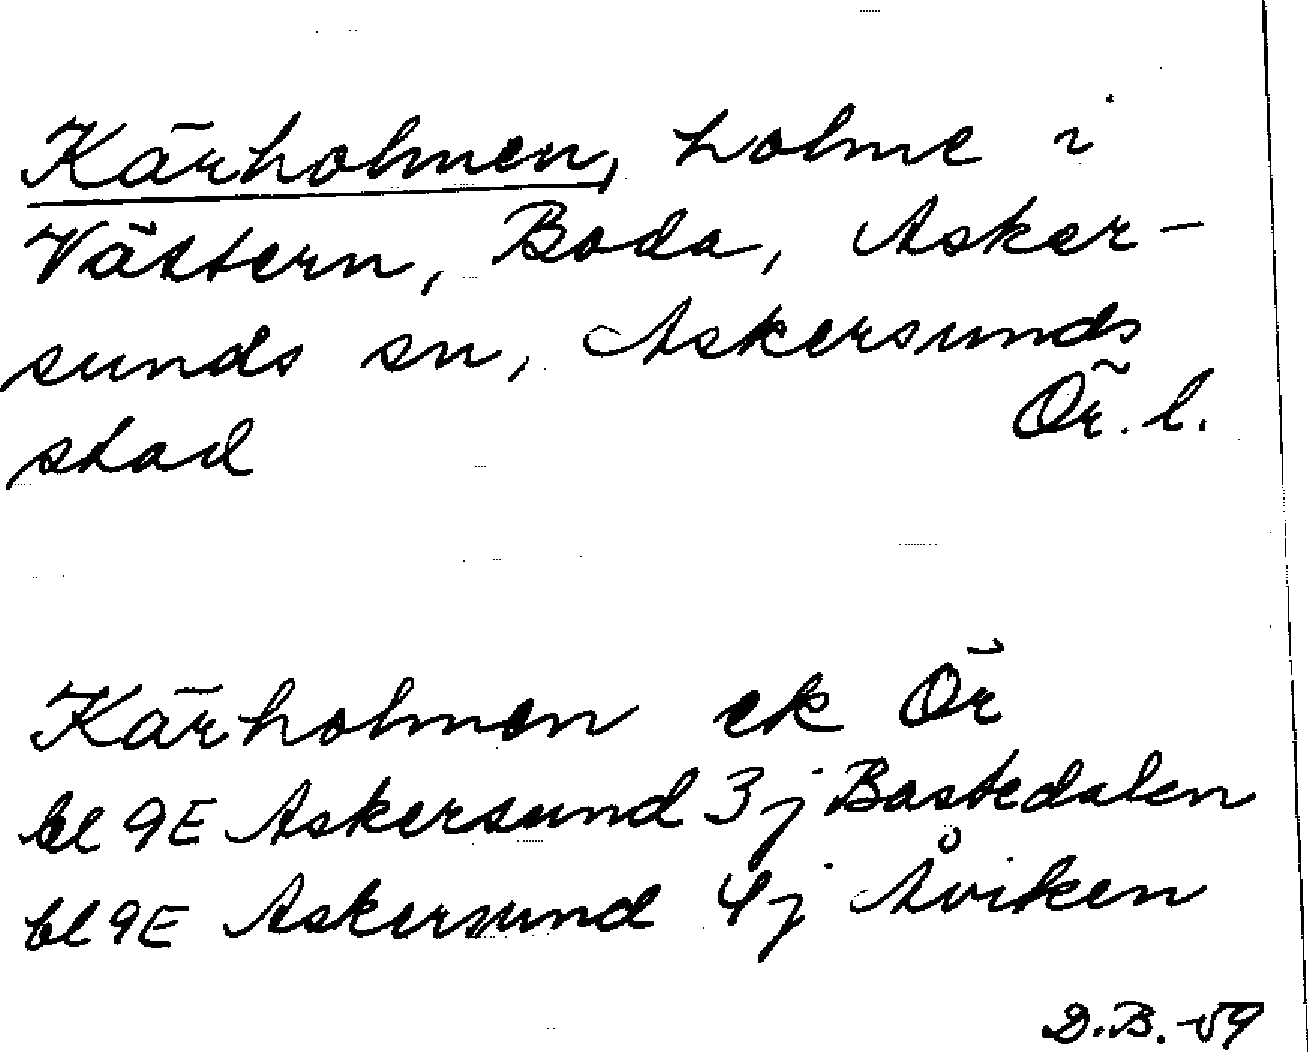 Kärholmen, holme i
Vättern, Boda, Asker-
sunds sn, Askersunds
stad Ör. l.
Kärholmen ek Ör
bl 9E Askersund 3j Bastedalen
bl 9E Askersund 4j Åviken
D.B. -59